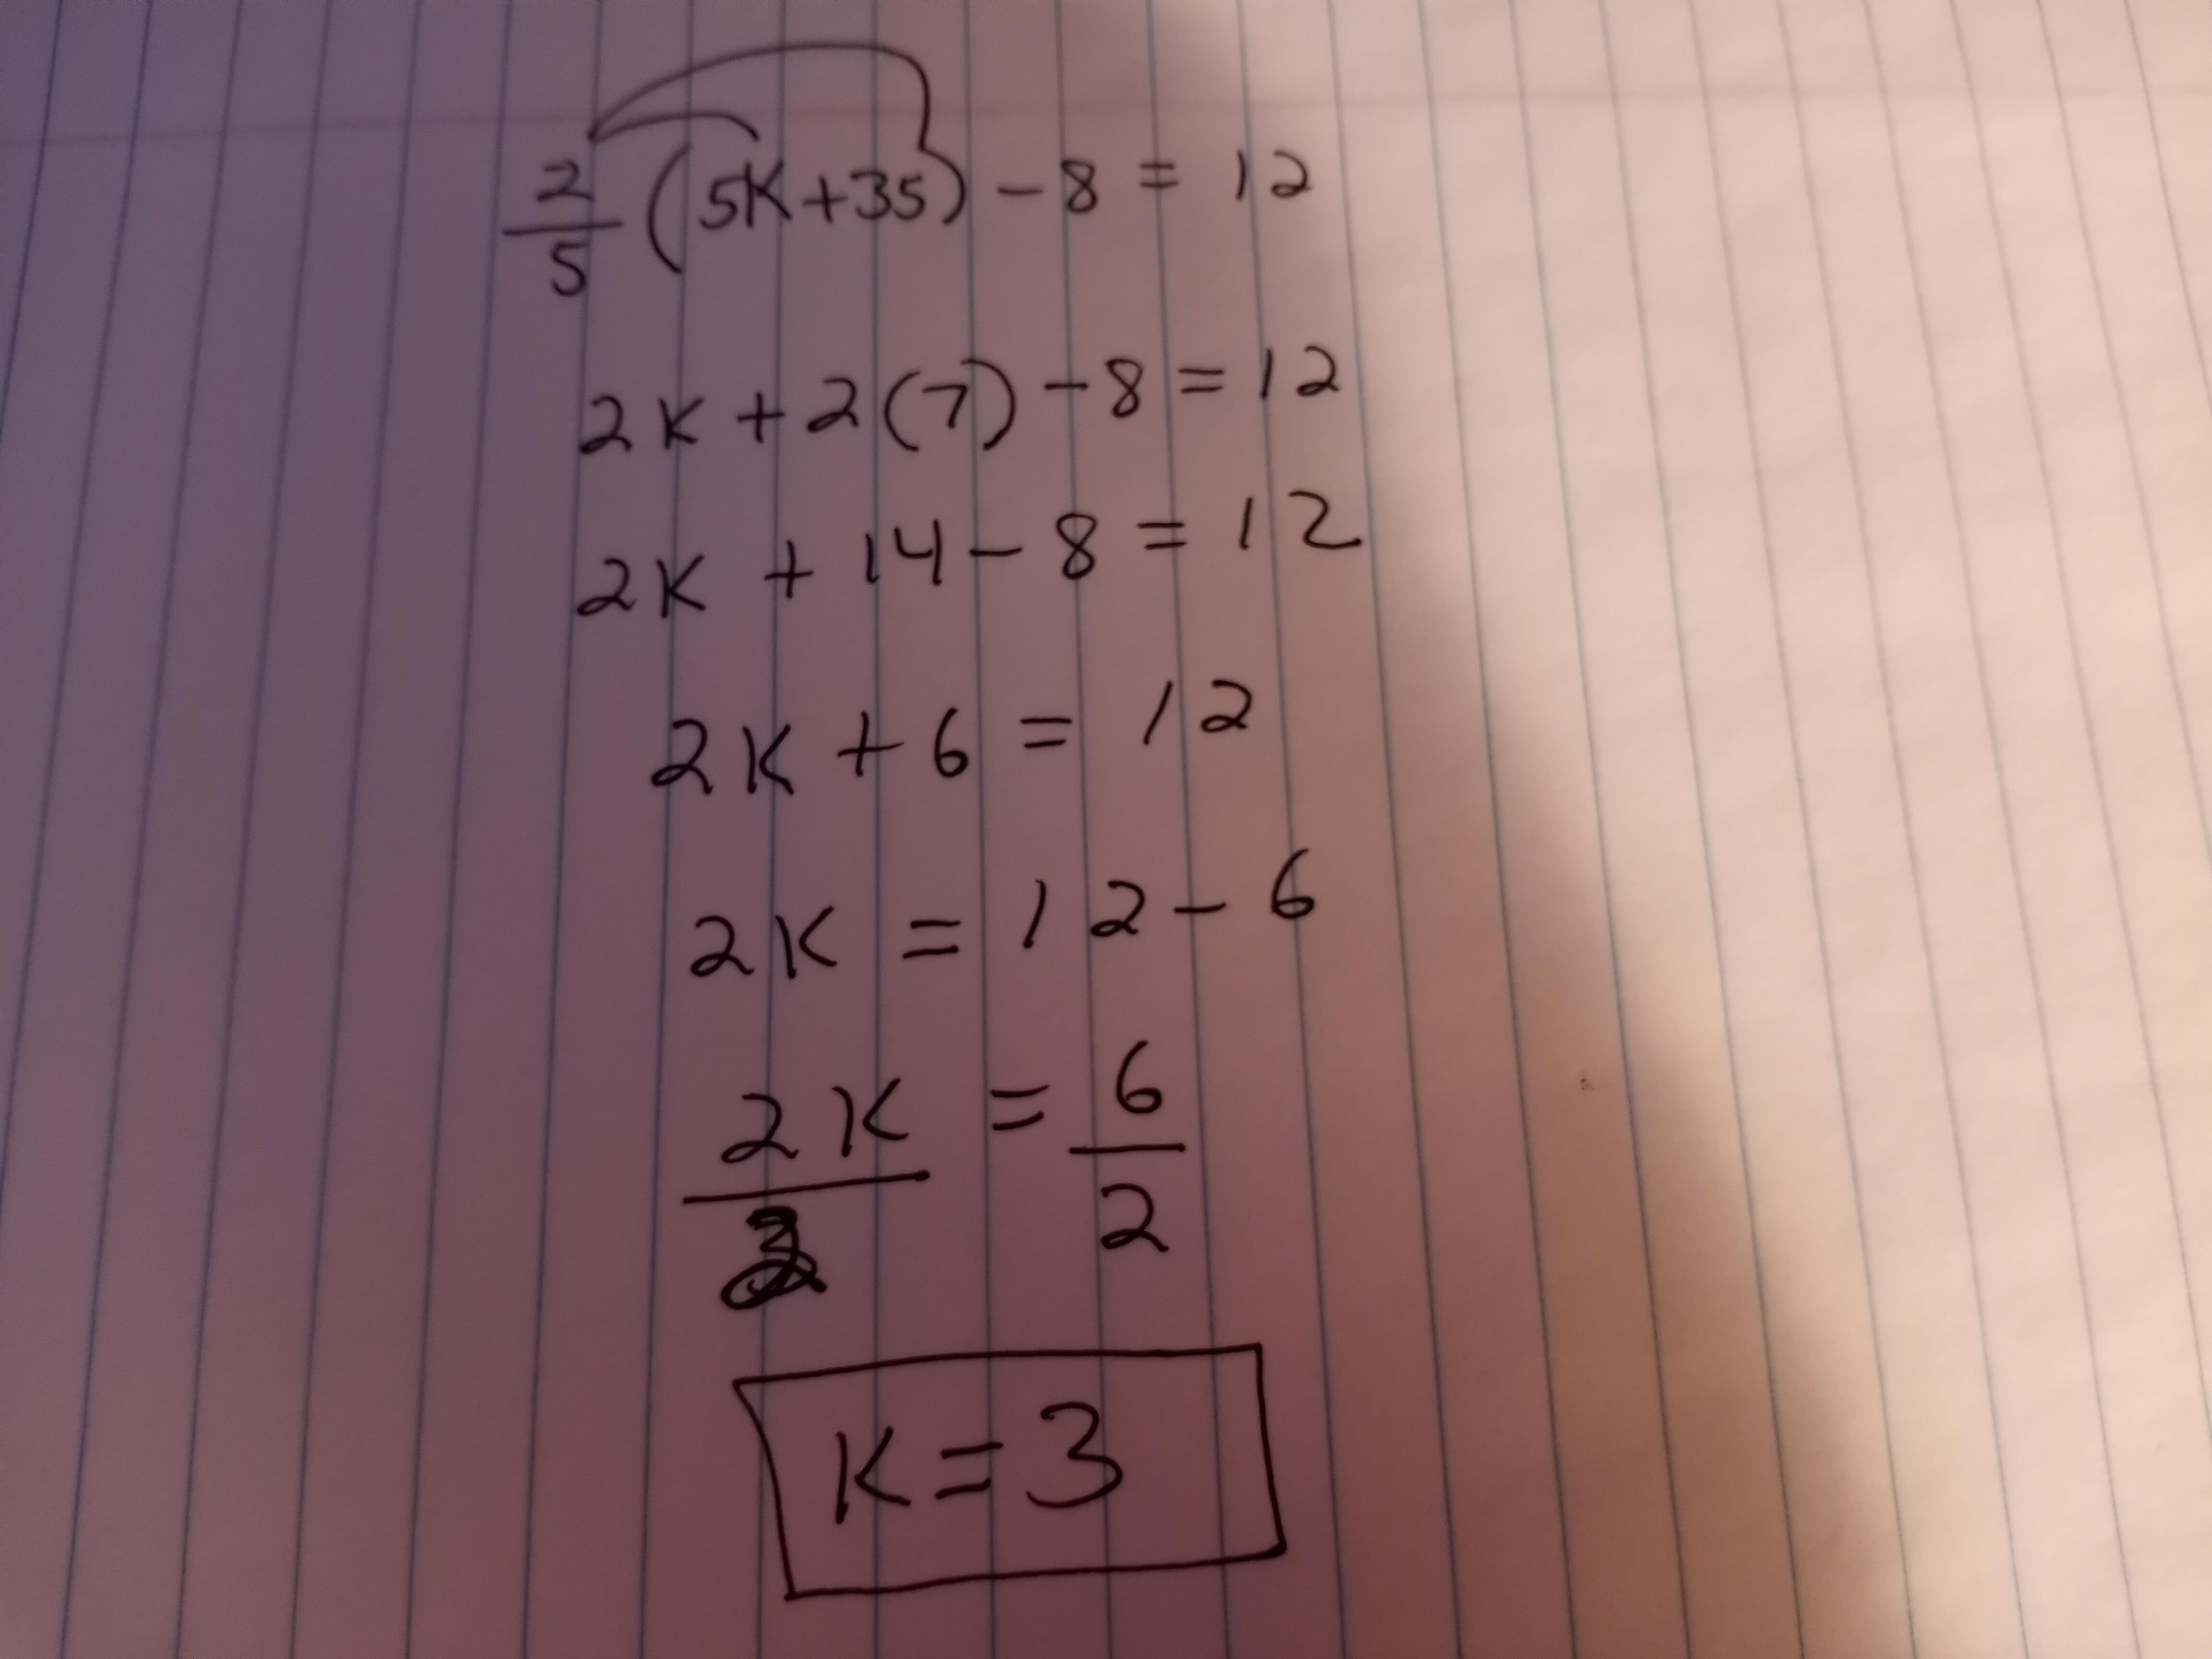 2/5 (5K+35) - 8 = 12
2K + 2(7) - 8 = 12
2K + 14 - 8 = 12
2K + 6 = 12
2K = 12 - 6
2K/2 = 6/2
K = 3